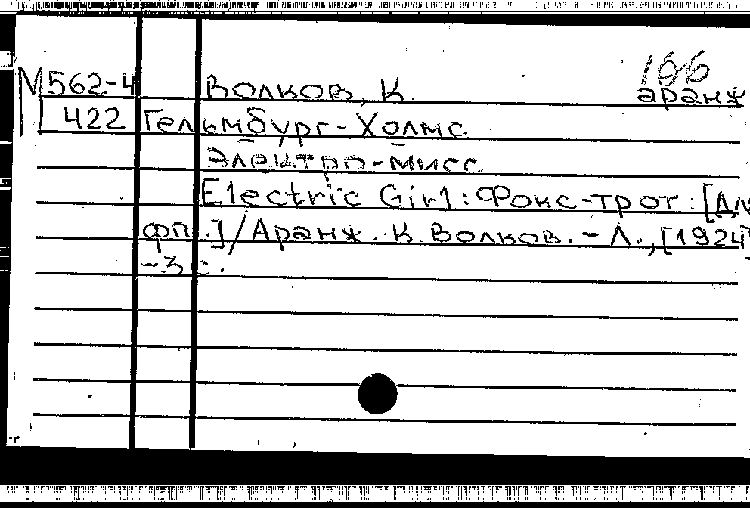 166
М562-4 Волков, К. аранж
422 Гельмбург-Холмс
Электро-мисс
Electric Girl: Фокс-трот: [Дл
фп.]/Аранж. К. Волков. - Л., [1924]
-3 с.